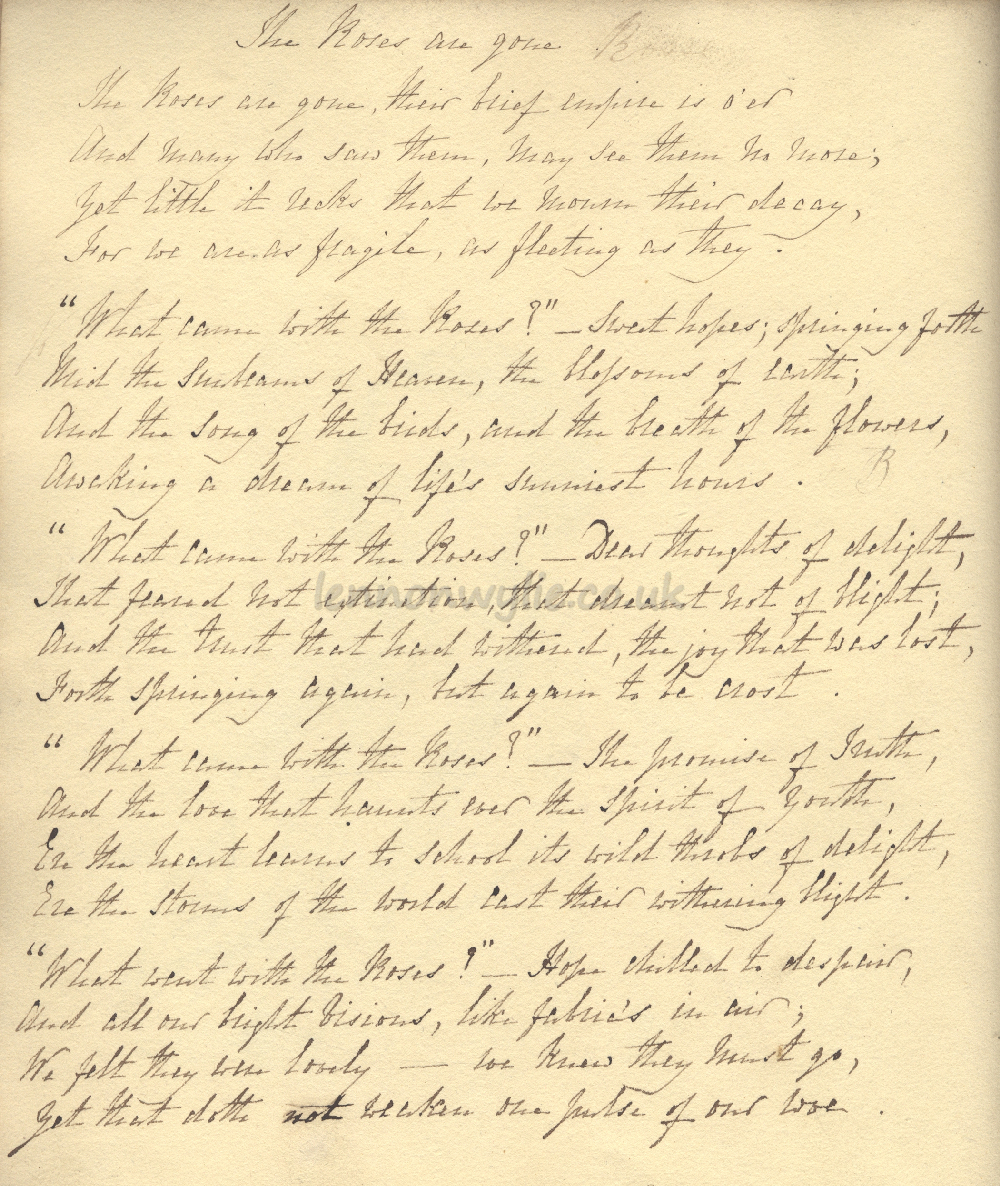 The Roses are gone
The Roses are gone, their brief empire is o'er
And many who saw them, may see them no more;
Yet little it recks that we mourn their decay,
For we are as fragile, as fleeting as they.
"What came with the Roses?" — Sweet hopes; springing forth
Mid the sunbeams of Heaven, the blossoms of earth;
And the song of the birds, and the breath of the flowers,
Awaking a dream of life's sunniest hours.
"What came with the Roses?" — Dear thoughts of delight,
That feared not extinction, that dreamt not of blight;
And the trust that had withered, the joy that was lost,
Forth springing again, but again to be crost.
"What came with the Roses?" — The promise of Truth,
And the love that haunts ever the spirit of Youth,
Ere the heart learns to school its wild throbs of delight,
Ere the storms of the world cast their withering blight.
"What went with the Roses?" — Hope chilled to despair,
And all our bright visions, like fabric's in air;
We felt they were lovely — we knew they must go,
Yet that doth not weaken one pulse of our woe.
lennonwylie.co.uk